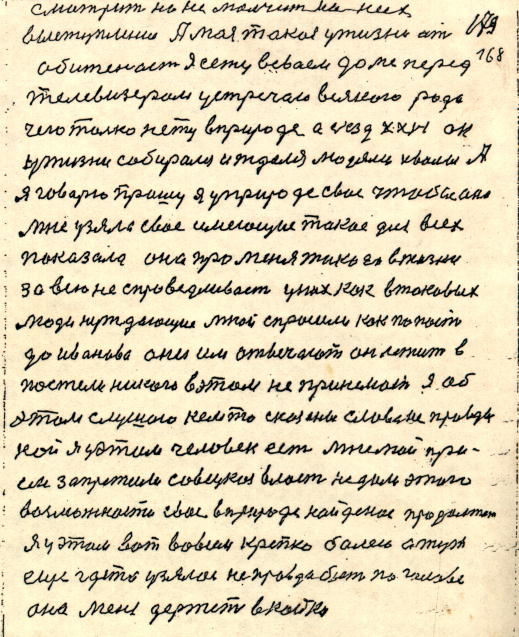 смотрит но не молчит на всех
выступлении А моя такая у жизни ат
179
168
обитеност Я сежу всваем доме перед
телевизерам устречаю всякого рода
чего толко нету вприроде а сезд XXVI он
ужизни собирался и ждался людями хвалы А
Я говарю прашу я уприроде свое чтобы она
мне узяла свое имеющие такое для всех
показала она про меня такого вжизни
за всю не справедливаст уних как втоковых
люди нуждающие мной спросили как попаст
до иванова они им отвечают он лежит в
постели никого вэтом не принемает Я об
этом слушаю кемто сказаны слова не правда
кой я уэтам человек ест мне мой при-
ем запретила совецкоя власт не дали этого
возможности свое вприроде найденое продолжат
Я уэтам вот вовсем крепко балею а тут
еще гдето узялос неправда бьет по голове
она меня держит вкойке